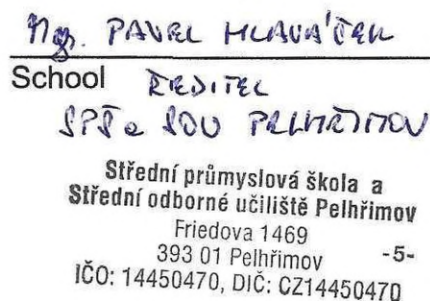 Mgr. PAVEL HLAVÁČEK
School ŘEDITEL
SPŠ a SOU PELHŘIMOV
Střední průmyslová škola a
Střední odborné učiliště Pelhřimov
Friedova 1469
393 01 Pelhřimov -5-
IČO: 14450470, DIČ: CZ14450470